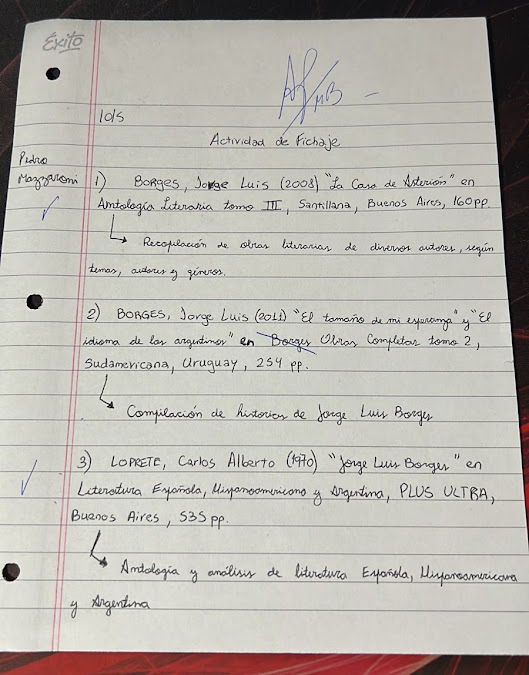 Éxito
MB -
10/5
Actividad de Fichaje
Pedro
Mazzaroni
1) BORGES, Jorge Luis (2008) "La Casa de Asterión" en
Antología Literaria tomo III, Santillana, Buenos Aires, 160 pp.
Recopilación de obras literarias de diversos autores, según
temas, autores y géneros.
2) BORGES, Jorge Luis (2011) "El tamaño de mi esperanza" y "El
idioma de los argentinos" en Borges Obras Completas tomo 2,
Sudamericana, Uruguay, 254 pp.
Compilación de historias de Jorge Luis Borges
3) LOPRETE, Carlos Alberto (1970) "Jorge Luis Borges" en
Literatura Española, Hispanoamericana y Argentina, PLUS ULTRA,
Buenos Aires, 535 pp.
Antología y análisis de literatura Española, Hispanoamericana
y Argentina